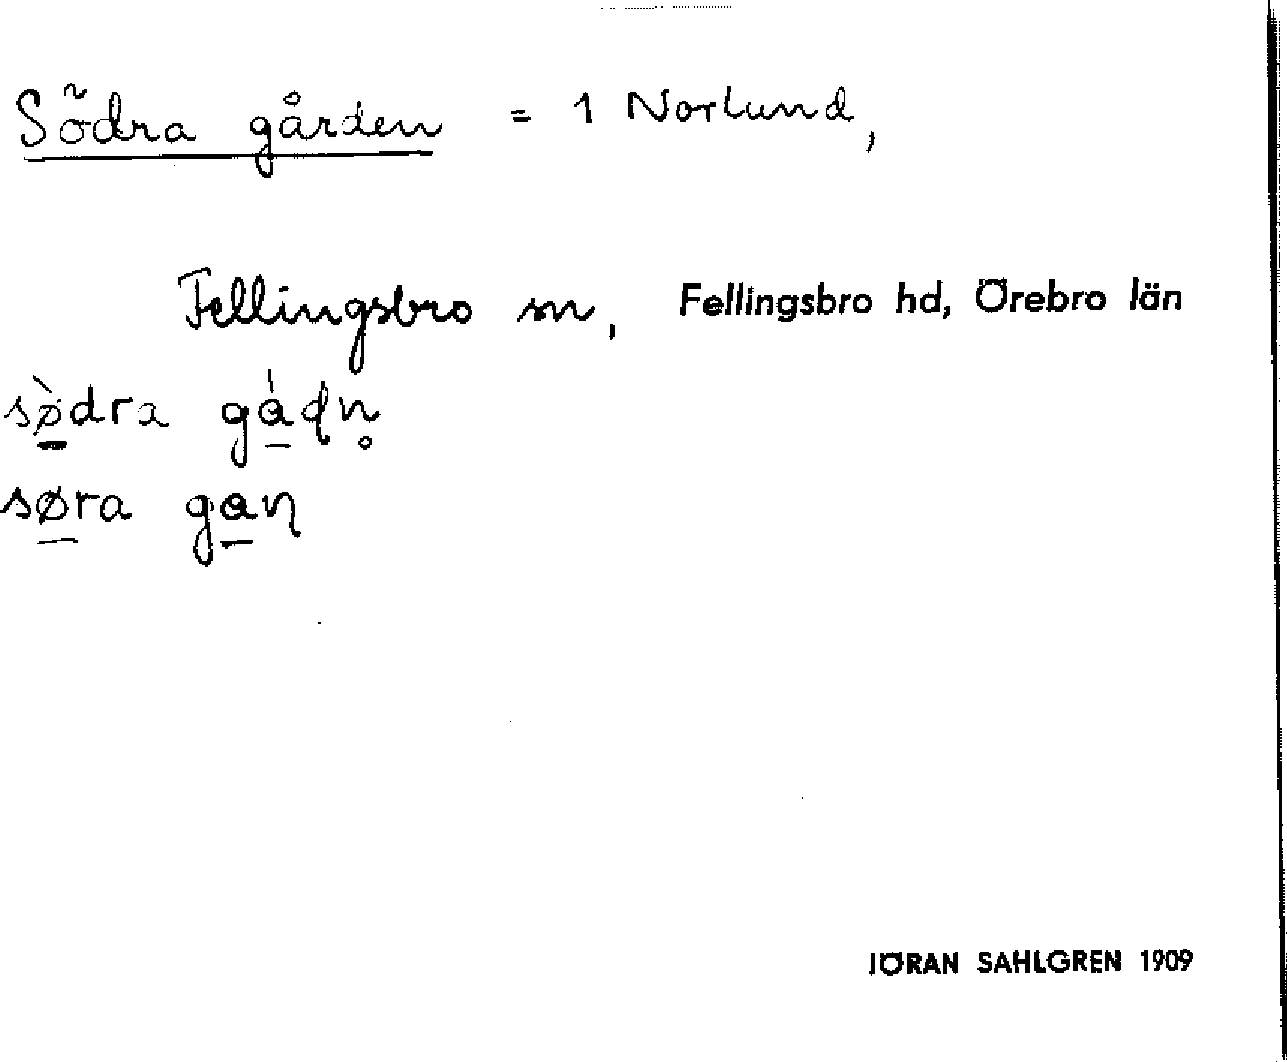 Södra gården = 1 Norlund,
Fellingsbro sn, Fellingsbro hd, Örebro län
sø̠̀dra gà̠ɖn̥
sø̠ra ga̠ɳ
JÖRAN SAHLGREN 1909